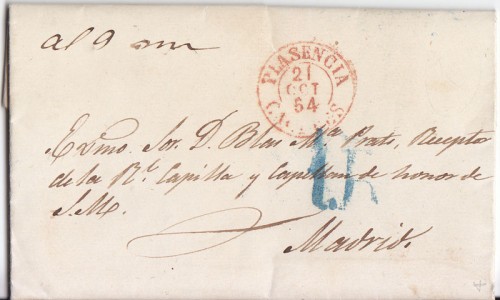 al 9 mu
PLASENCIA
21
OCT
54
CACERES
Exmo. Sor. D. Blas Mª Prats, Receptor
1R
de la Rl. Capilla y Capellan de honor de
S.M.
Madrid.